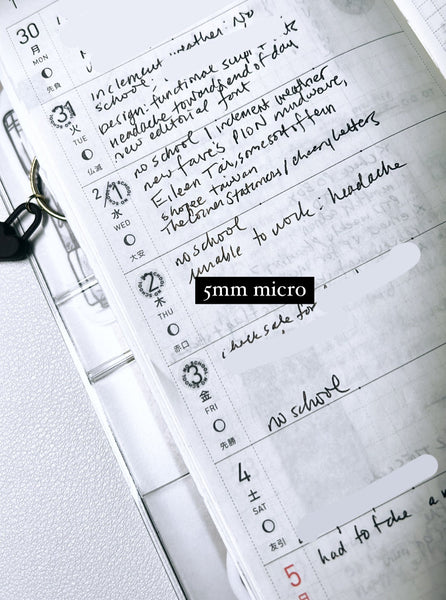 30
月
MON
先負
31
火
TUE
仏滅
Inclement weather: No
school.
Design: functional
headache toward end of day
new editorial font
2
1
水
WED
大安
no school / inclement weather
new fave's PION mindwave,
Eileen Tai, some sort of fern
shopee taiwan
The Corner Stationers / cheery letters
2
木
THU
赤口
no school
unable to work: headache
5mm micro
check sale for
3
金
FRI
先勝
no school
4
土
SAT
友引
5
had to